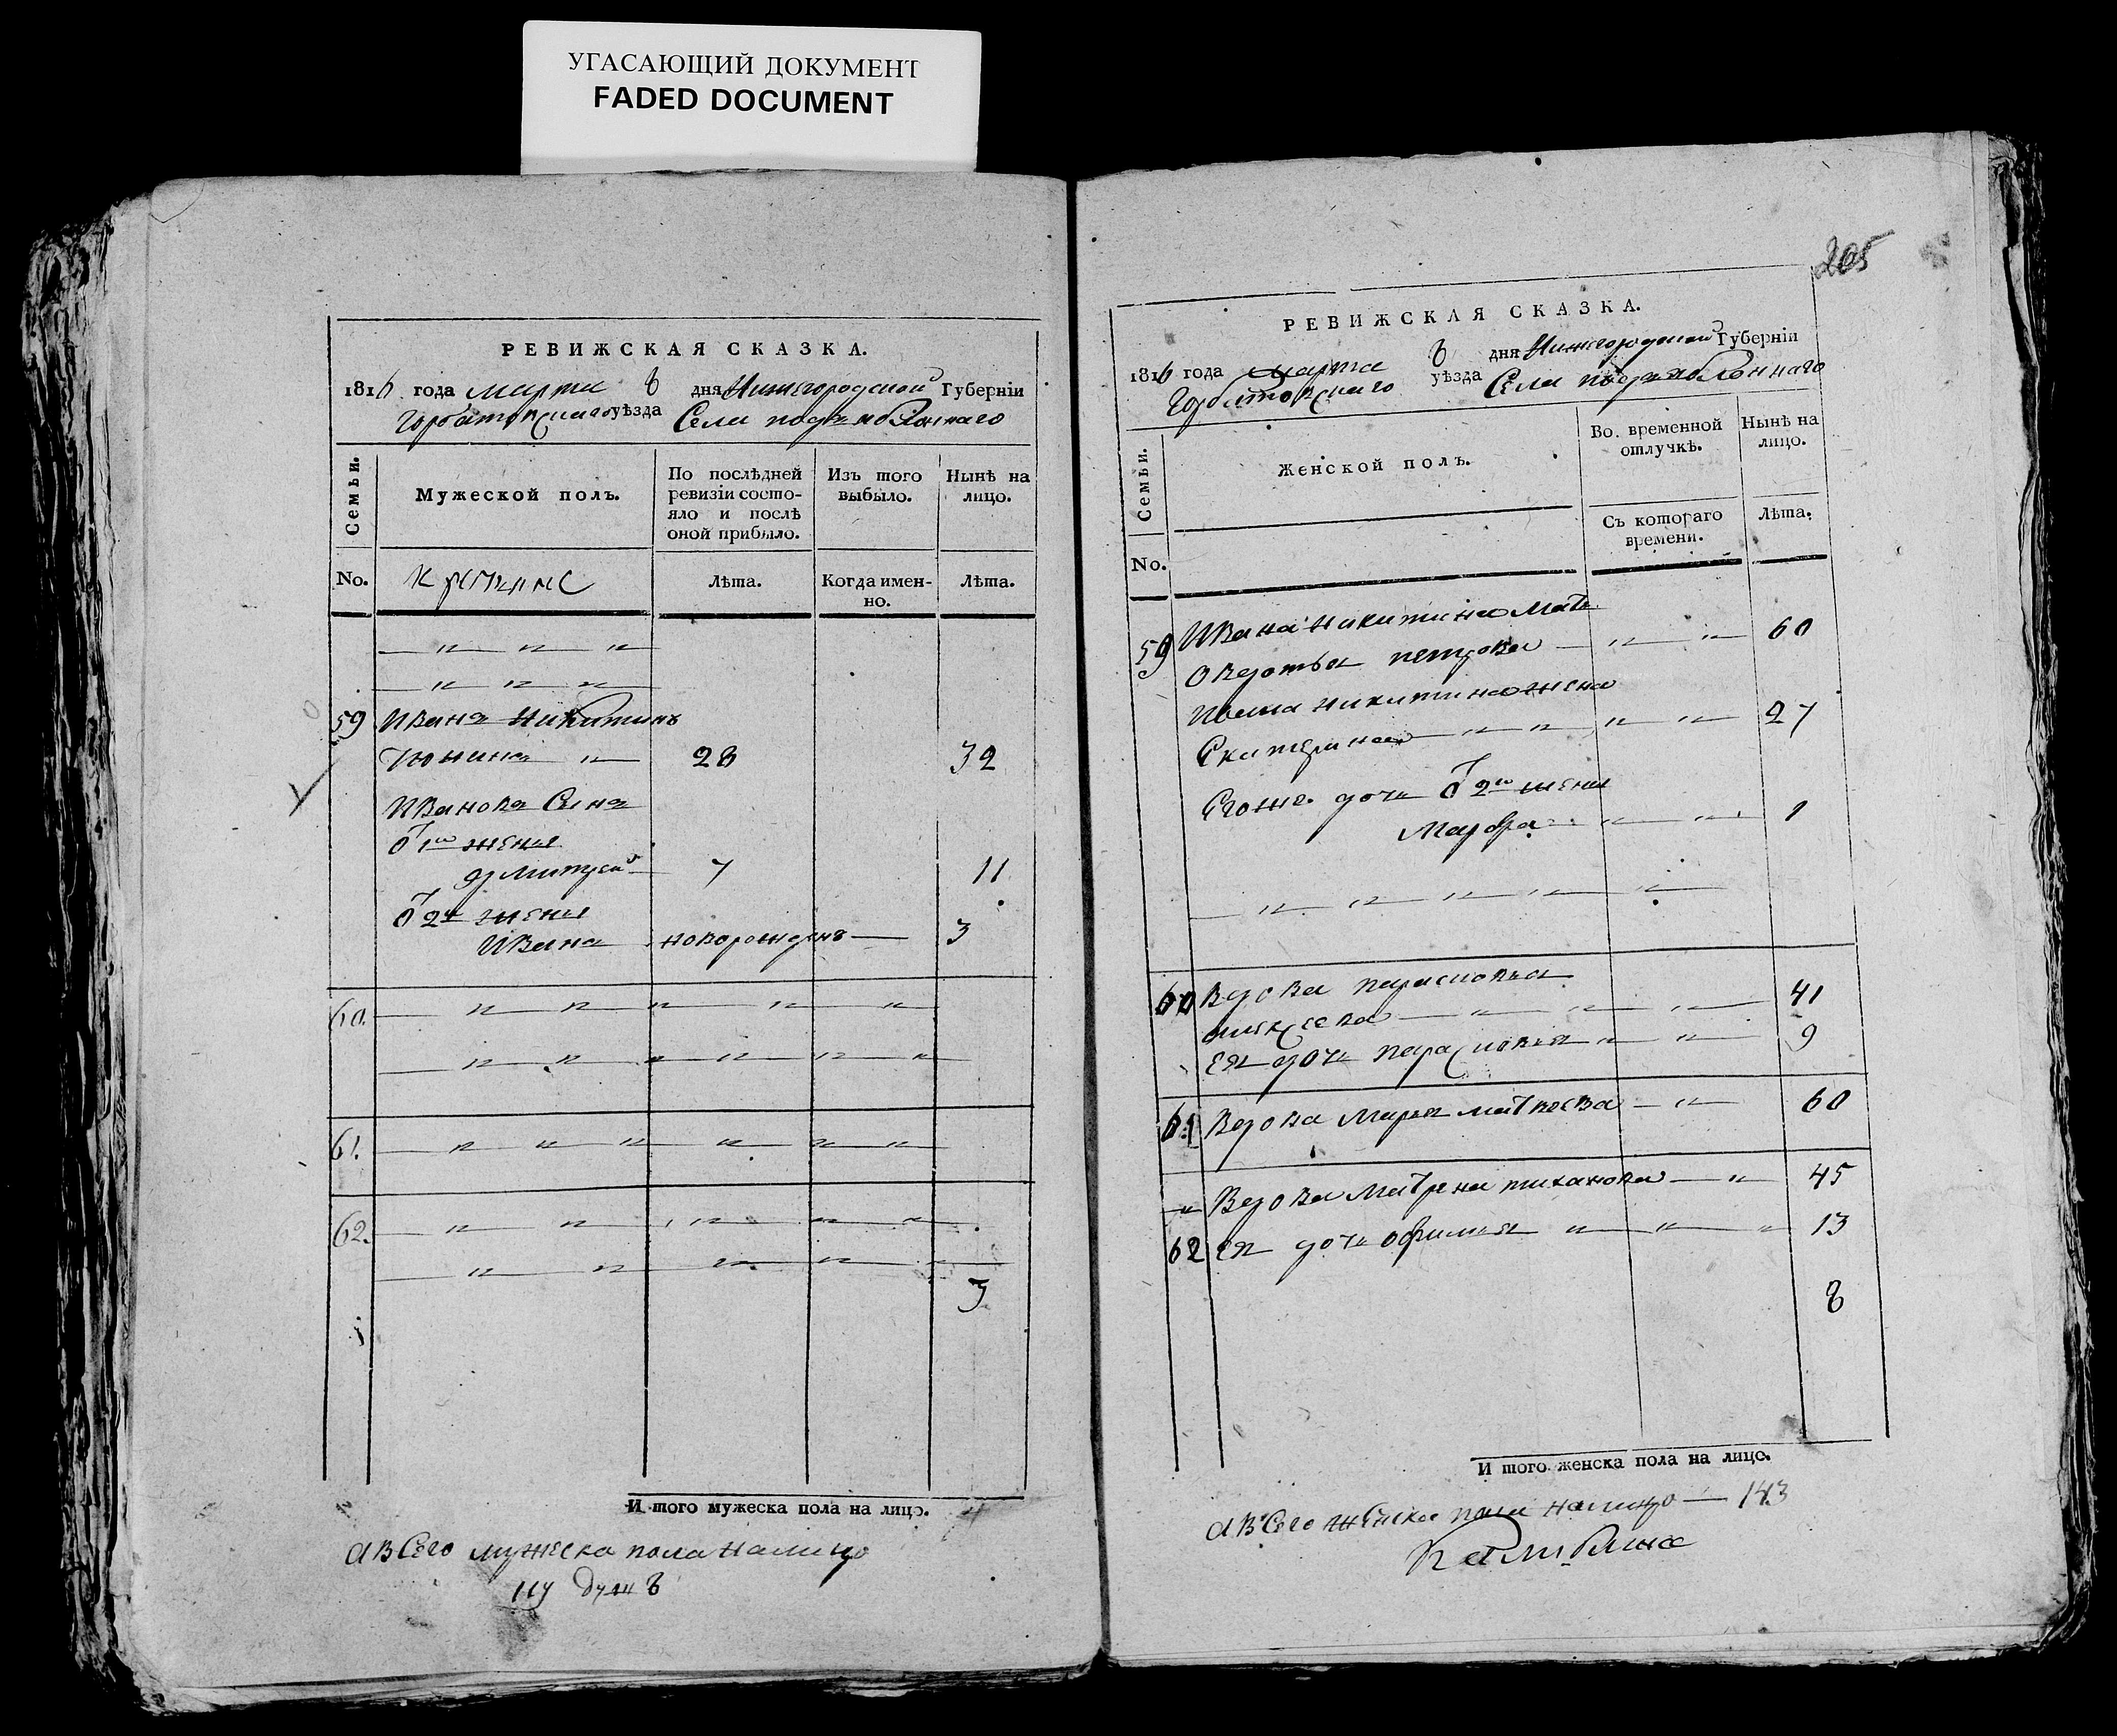 УГАСАЮЩИЙ ДОКУМЕНТ
FADED DOCUMENT
РЕВИЖСКАЯ СКАЗКА.
1816 года марта 8 дня Нижегородской Губерніи
Горбатовскаго уѣзда Села
Семьи.
Мужеской полъ.
По послѣдней ревизіи состо-
яло и послѣ
оной прибыло.
Изъ того
выбыло.
Нынѣ на
лицо.
No.
лѣта.
Когда имен-
но.
лѣта.
59 Иванъ Никитинъ
28 32
Ивановъ Сынъ
От 1й жены
Дмитрей 7 11
От 2й жены
Иванъ новорожденъ 3
60.
61.
62.
3
И того мужеска пола на лицо.
а всего мужеска пола на лицо
душъ
205
РЕВИЖСКАЯ СКАЗКА.
1816 года марта 8 дня Нижегородской Губерніи
Горбатовскаго уѣзда Села
Семьи.
Женской полъ.
Во временной
отлучкѣ.
Нынѣ на
лицо.
Съ котораго
времени.
Лѣта.
No.
59 Ивана Никитина мать
Овдотья петрова 60
Ивана Никитина жена
Екатерина 27
Егоже дочь От 2й жены
Марфа 1
60 Вдова парасковья
41
ея дочь парасковья 9
61 Вдова Марья матвеева 60
Вдова Матрена тиханова 45
62 ея дочь офимья 13
8
И того женска пола на лицо.
а всего женска пола на лицо 143